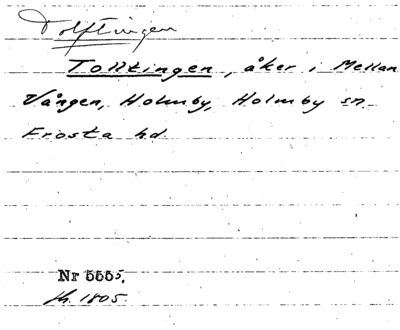 Tolftingen
Tolltingen, åker i Mellan
Vången, Holmby, Holmby sn.
Frosta hd.
Nr 5555.
1805.